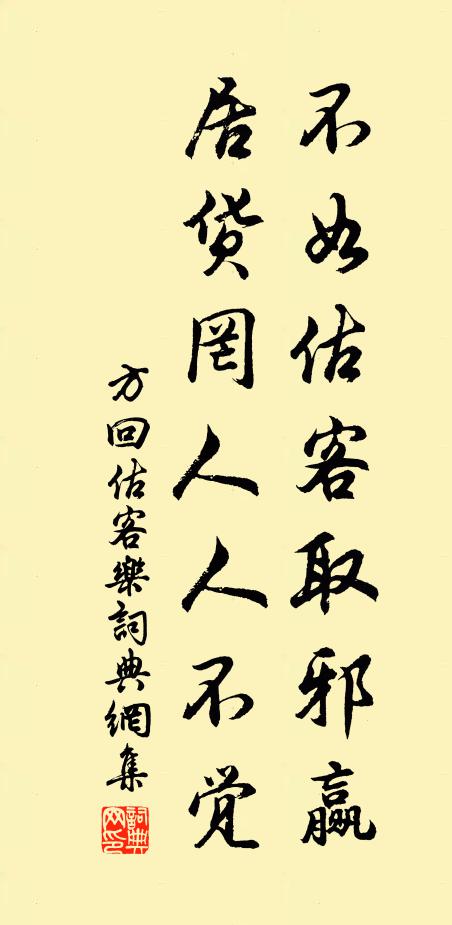 不如估客取邪赢
居货罔人人不觉
方回估客樂詞典網集
詞典网印